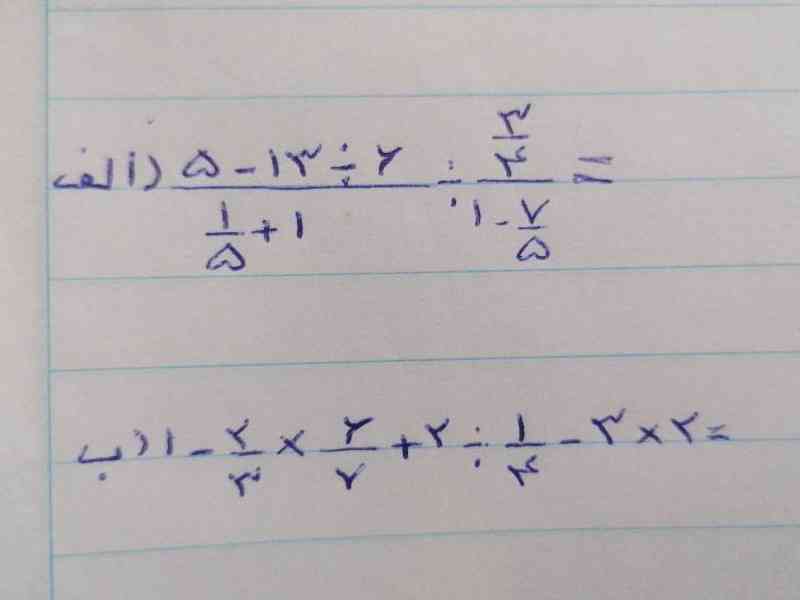 الف) ۵ - ۱۳ ÷ ۲ / (۱/۵ + ۱) ÷ (۳/۴) / (۱ - ۷/۵) =
ب) ۱ - ۲/۳ × ۲/۲ + ۲ ÷ ۱/۴ - ۳ × ۲ =